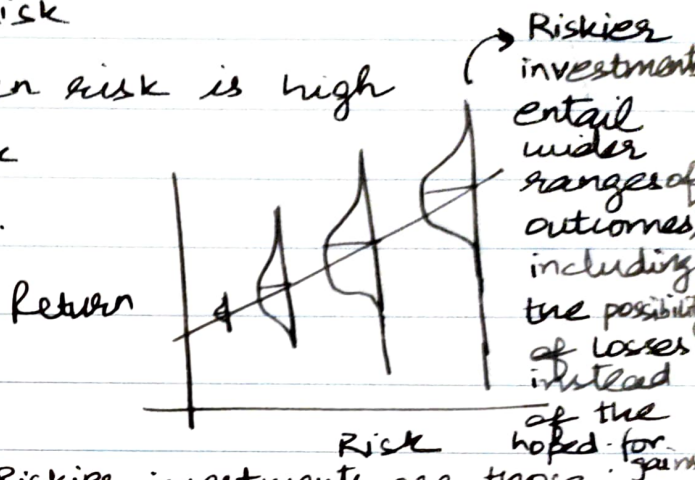 isk
n risk is high
Riskier
investments
entail
wider
ranges of
outcomes,
including
the possibilit
of losses
instead
of the
hoped-for
gains
Return
Risk
Riskier investments are those